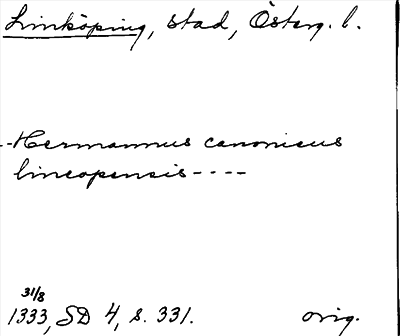 Linköping, stad, Österg. l.
--Hermannus canonicus
lincopensis----
31/8
1333, SD 4, s. 331. orig.